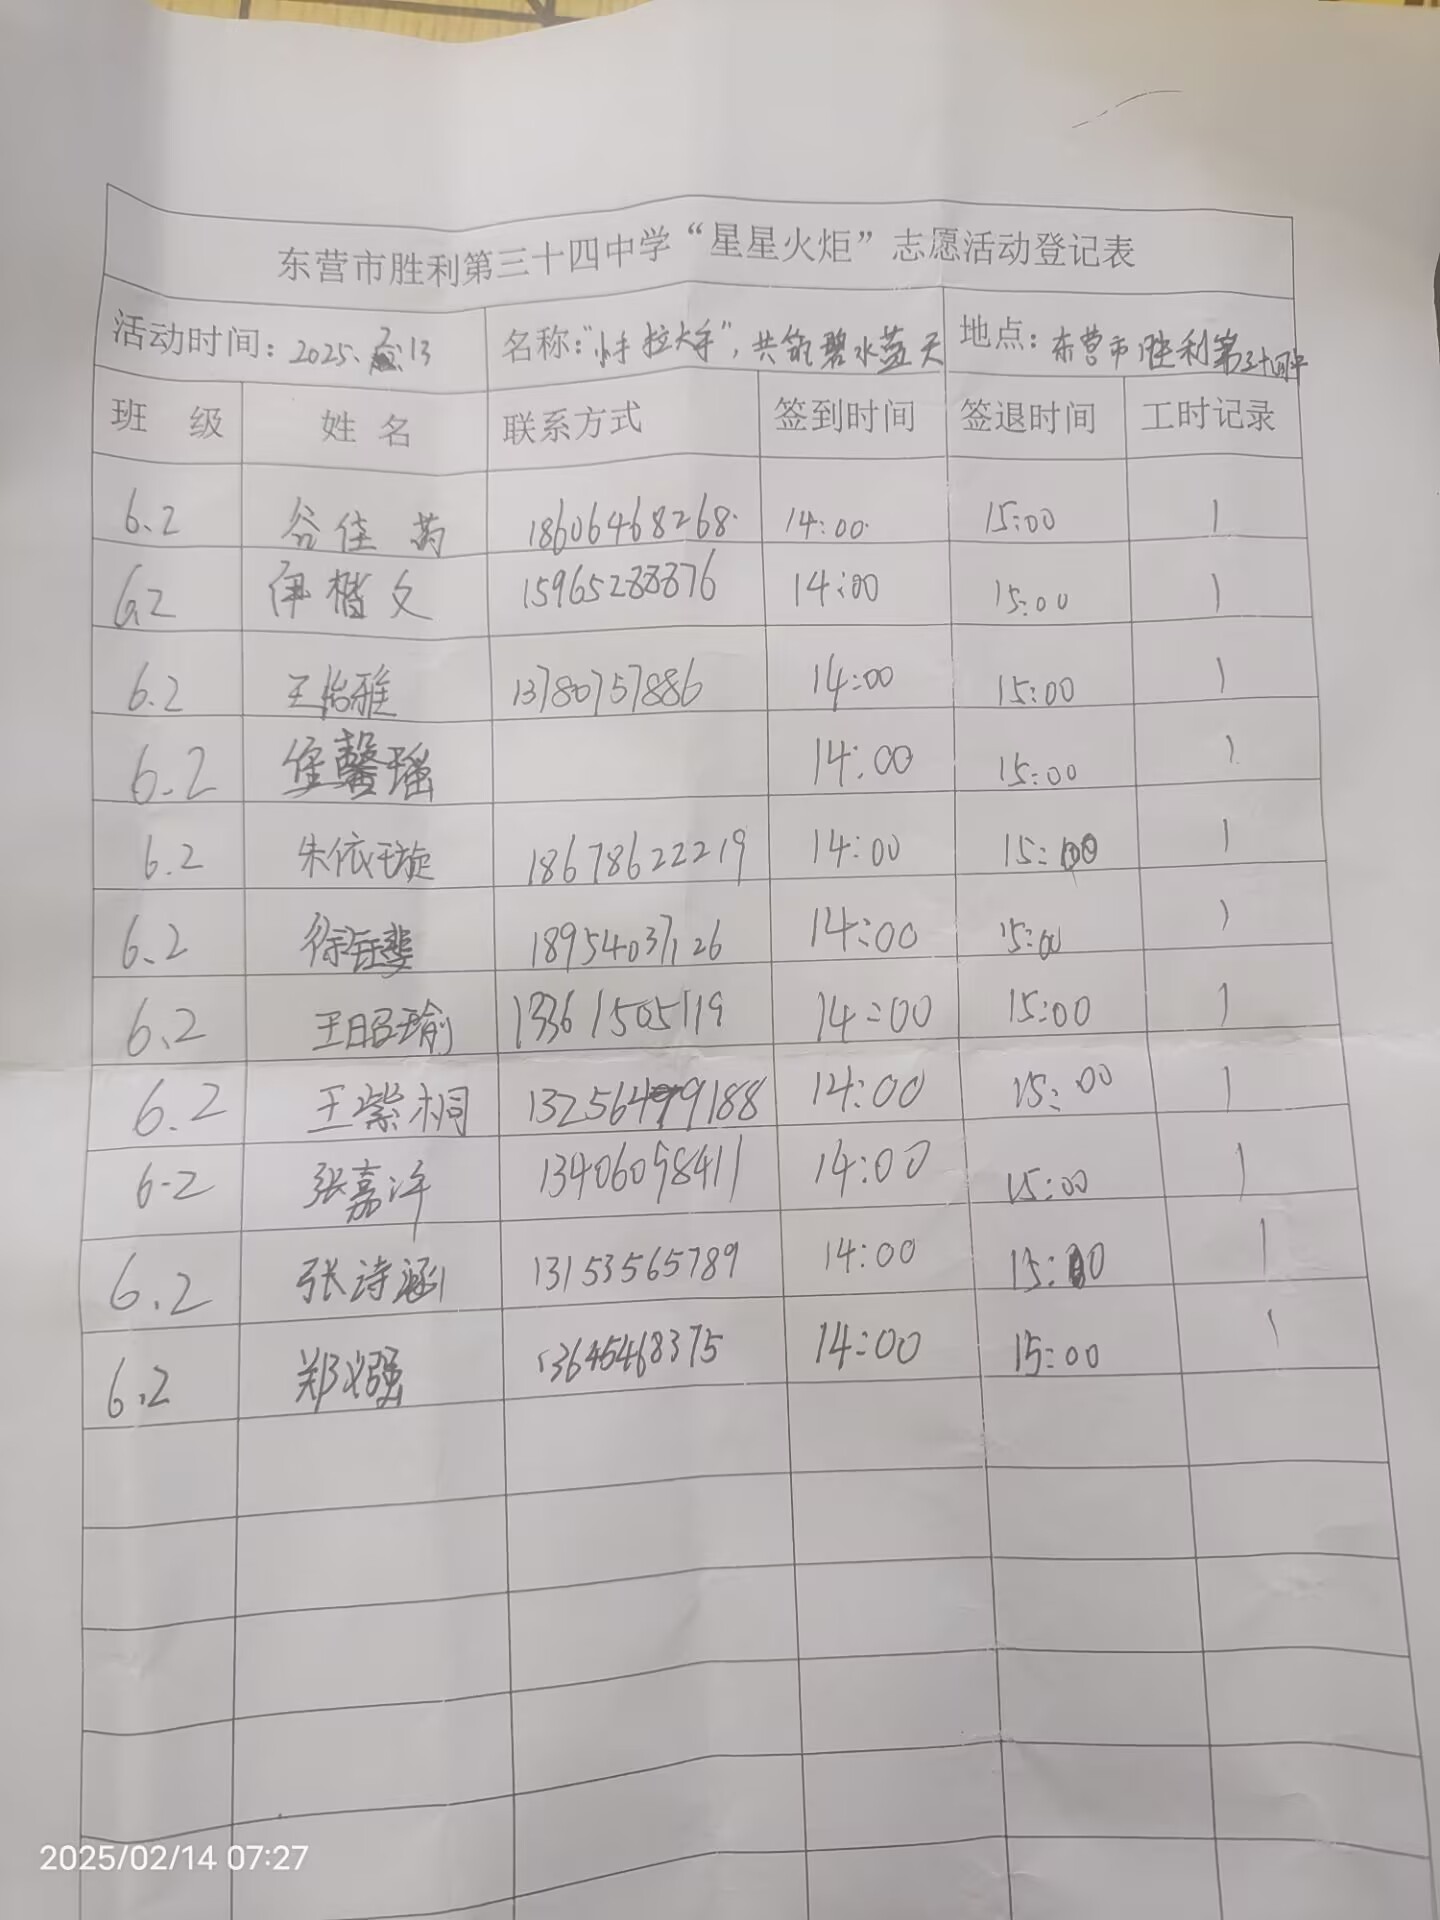 东营市胜利第三十四中学“星星火炬”志愿活动登记表
活动时间：2025.2.13 名称：“小手拉大手”，共筑碧水蓝天 地点：东营市胜利第三十四中
班 级 姓 名 联系方式 签到时间 签退时间 工时记录
6.2 谷佳 18606468268 14:00 15:00 1
6.2 伊楷文 15965288876 14:00 15:00 1
6.2 王怡雅 13780757886 14:00 15:00 1
6.2 馨瑶 14:00 15:00 1
6.2 朱依璇 18678622219 14:00 15:00 1
6.2 徐钰斐 18954037126 14:00 15:00 1
6.2 王昭瑜 13361505119 14:00 15:00 1
6.2 王紫桐 13256499188 14:00 15:00 1
6.2 张嘉洋 13406098411 14:00 15:00 1
6.2 张诗涵 13153565789 14:00 15:00 1
6.2 郑义强 13645468375 14:00 15:00 1
2025/02/14 07:27